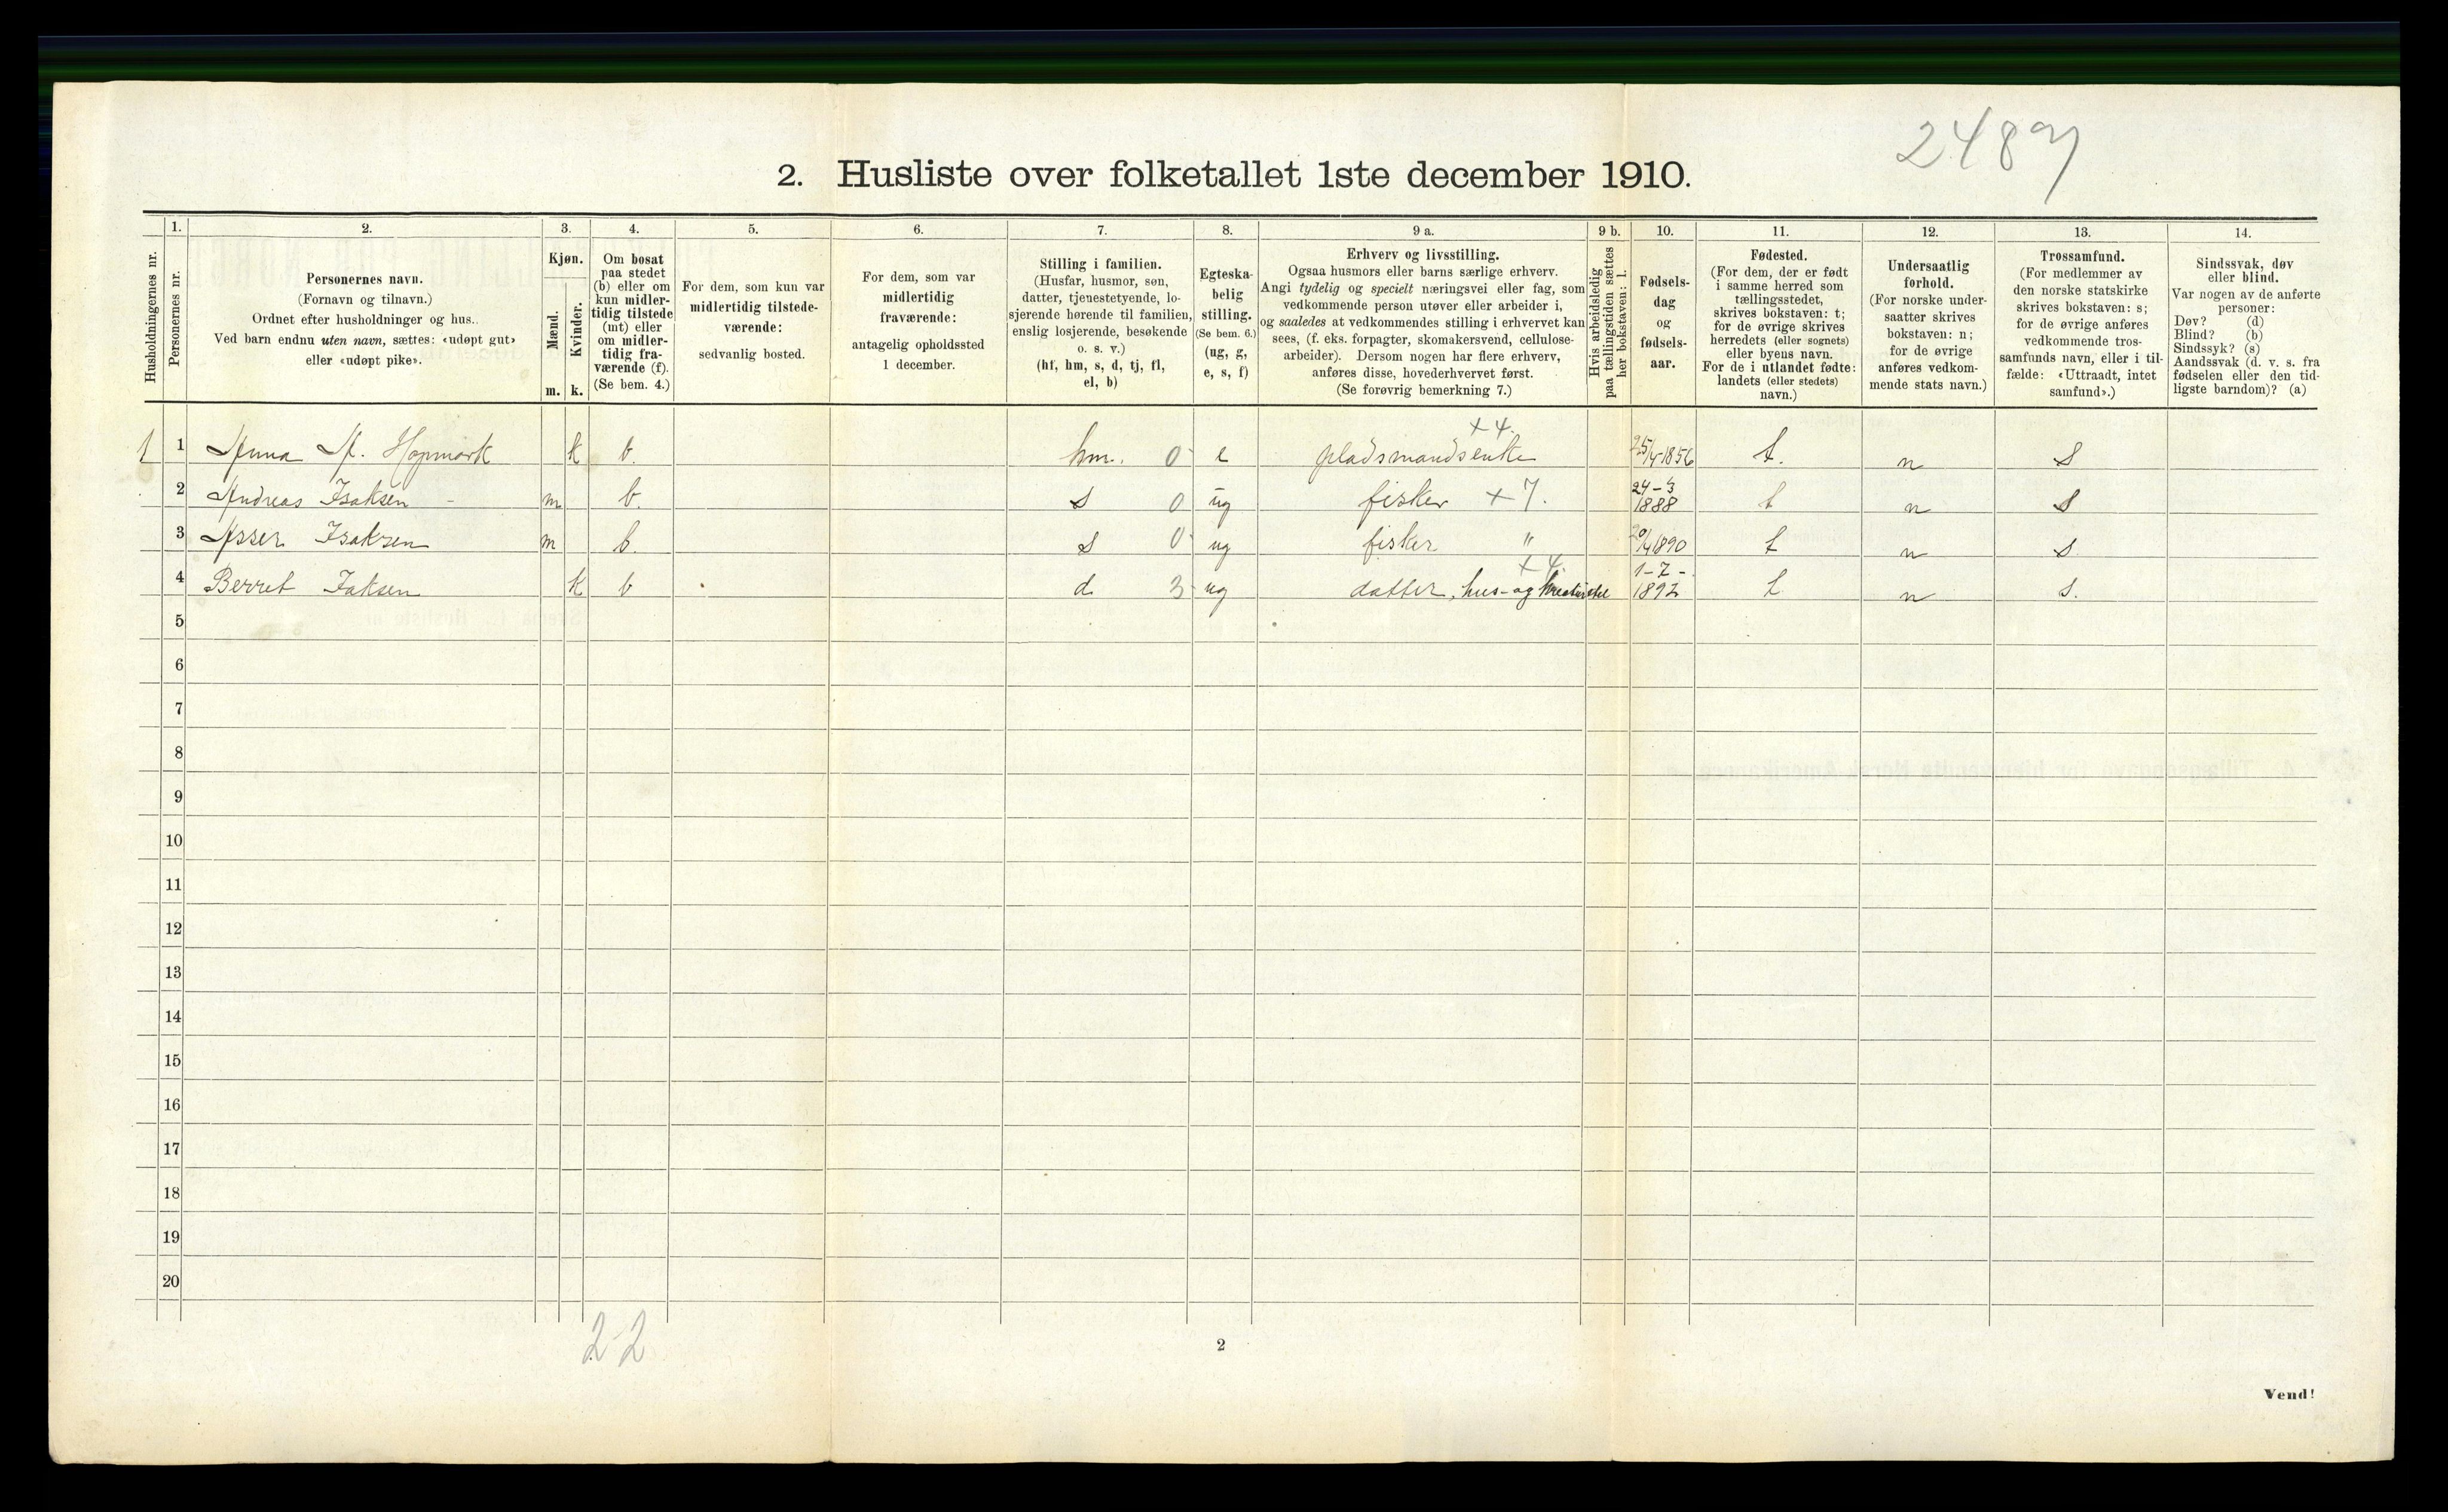 2489
2. Husliste over folketallet 1ste december 1910.
Husholdningernes nr.
1.
Personernes nr.
2.
Personernes navn.
(Fornavn og tilnavn.)
Ordnet efter husholdninger og hus.
Ved barn endnu uten navn, sættes: «udøpt gut»
eller «udøpt pike».
3.
Kjøn.
Mænd.
Kvinder.
m. k.
4.
Om bosat
paa stedet
(b) eller om
kun midler-
tidig tilstede
(mt) eller
om midler-
tidig fra-
værende (f).
(Se bem. 4.)
5.
For dem, som kun var
midlertidig tilstede-
værende:
sedvanlig bosted.
6.
For dem, som var
midlertidig
fraværende:
antagelig opholdssted
1 december.
7.
Stilling i familien.
(Husfar, husmor, søn,
datter, tjenestetyende, lo-
sjerende hørende til familien,
enslig losjerende, besøkende
o. s. v.)
(hf, hm, s, d, tj, fl,
el, b)
8.
Egteska-
belig
stilling.
(Se bem. 6.)
(ug, g,
e, s, f)
9 a.
Erhverv og livsstilling.
Ogsaa husmors eller barns særlige erhverv.
Angi tydelig og specielt næringsvei eller fag, som
vedkommende person utøver eller arbeider i,
og saaledes at vedkommendes stilling i erhvervet kan
sees, (f. eks. forpagter, skomakersvend, cellulose-
arbeider). Dersom nogen har flere erhverv,
anføres disse, hovederhvervet først.
(Se forøvrig bemerkning 7.)
9 b.
Hvis arbeidsledig
paa tællingstiden sættes
her bokstaven: l.
10.
Fødsels-
dag
og
fødsels-
aar.
11.
Fødested.
(For dem, der er født
i samme herred som
tællingsstedet,
skrives bokstaven: t;
for de øvrige skrives
herredets (eller sognets)
eller byens navn.
For de i utlandet fødte:
landets (eller stedets)
navn.)
12.
Undersaatlig
forhold.
(For norske under-
saatter skrives
bokstaven: n;
for de øvrige
anføres vedkom-
mende stats navn.)
13.
Trossamfund.
(For medlemmer av
den norske statskirke
skrives bokstaven: s;
for de øvrige anføres
vedkommende tros-
samfunds navn, eller i til-
fælde: «Uttraadt, intet
samfund».)
14.
Sindssvak, døv
eller blind.
Var nogen av de anførte
personer:
Døv? (d)
Blind? (b)
Sindssyk? (s)
Aandssvak (d. v. s. fra
fødselen eller den tid-
ligste barndom)? (a)
1 1 Anna A. Hopmark k b. hm. 0 e pladsmandsenke +4. 25/4-1856 t. n s
2 Andreas Isaksen - m b. s 0 ug fisker +7. 24-3 1888 t n s
3 Asser Isaksen m b. s 0 ug fisker " 1890 t n s
4 Berret Isaksen k b d. 3 ug datter, hus- og +4 1-7- 1892 t n s.
5
6
7
8
9
10
11
12
13
14
15
16
17
18
19
20
2-2
2
Vend!